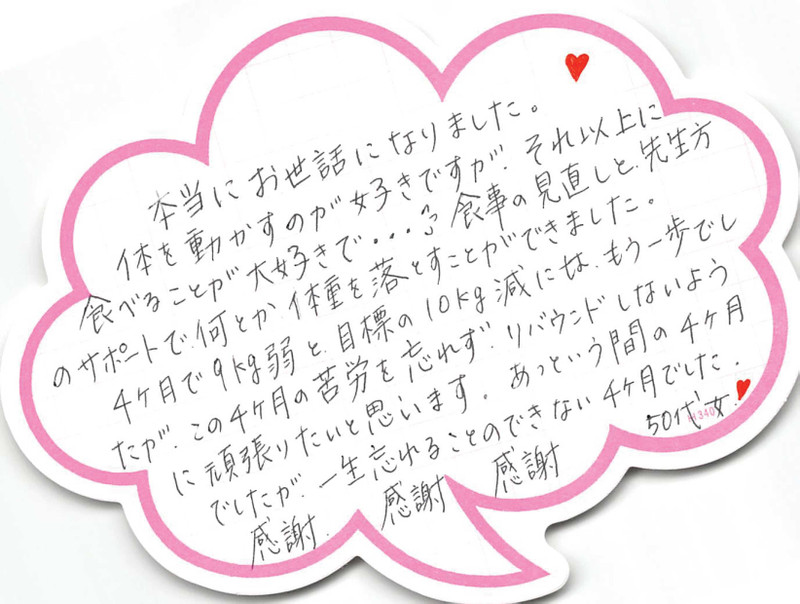 本当にお世話になりました。
体を動かすのが好きですが、それ以上に
食べることが大好きで・・・。食事の見直しと、先生方
のサポートで、何とか、体重を落とすことができました。
4ヶ月で9kg弱と、目標の10kg減には、もう一歩でし
たが、この4ヶ月の苦労を忘れず、リバウンドしないよう
に頑張りたいと思います。あっという間の4ヶ月
でしたが、一生忘れることのできない4ヶ月でした。
感謝 感謝 感謝
50代 女